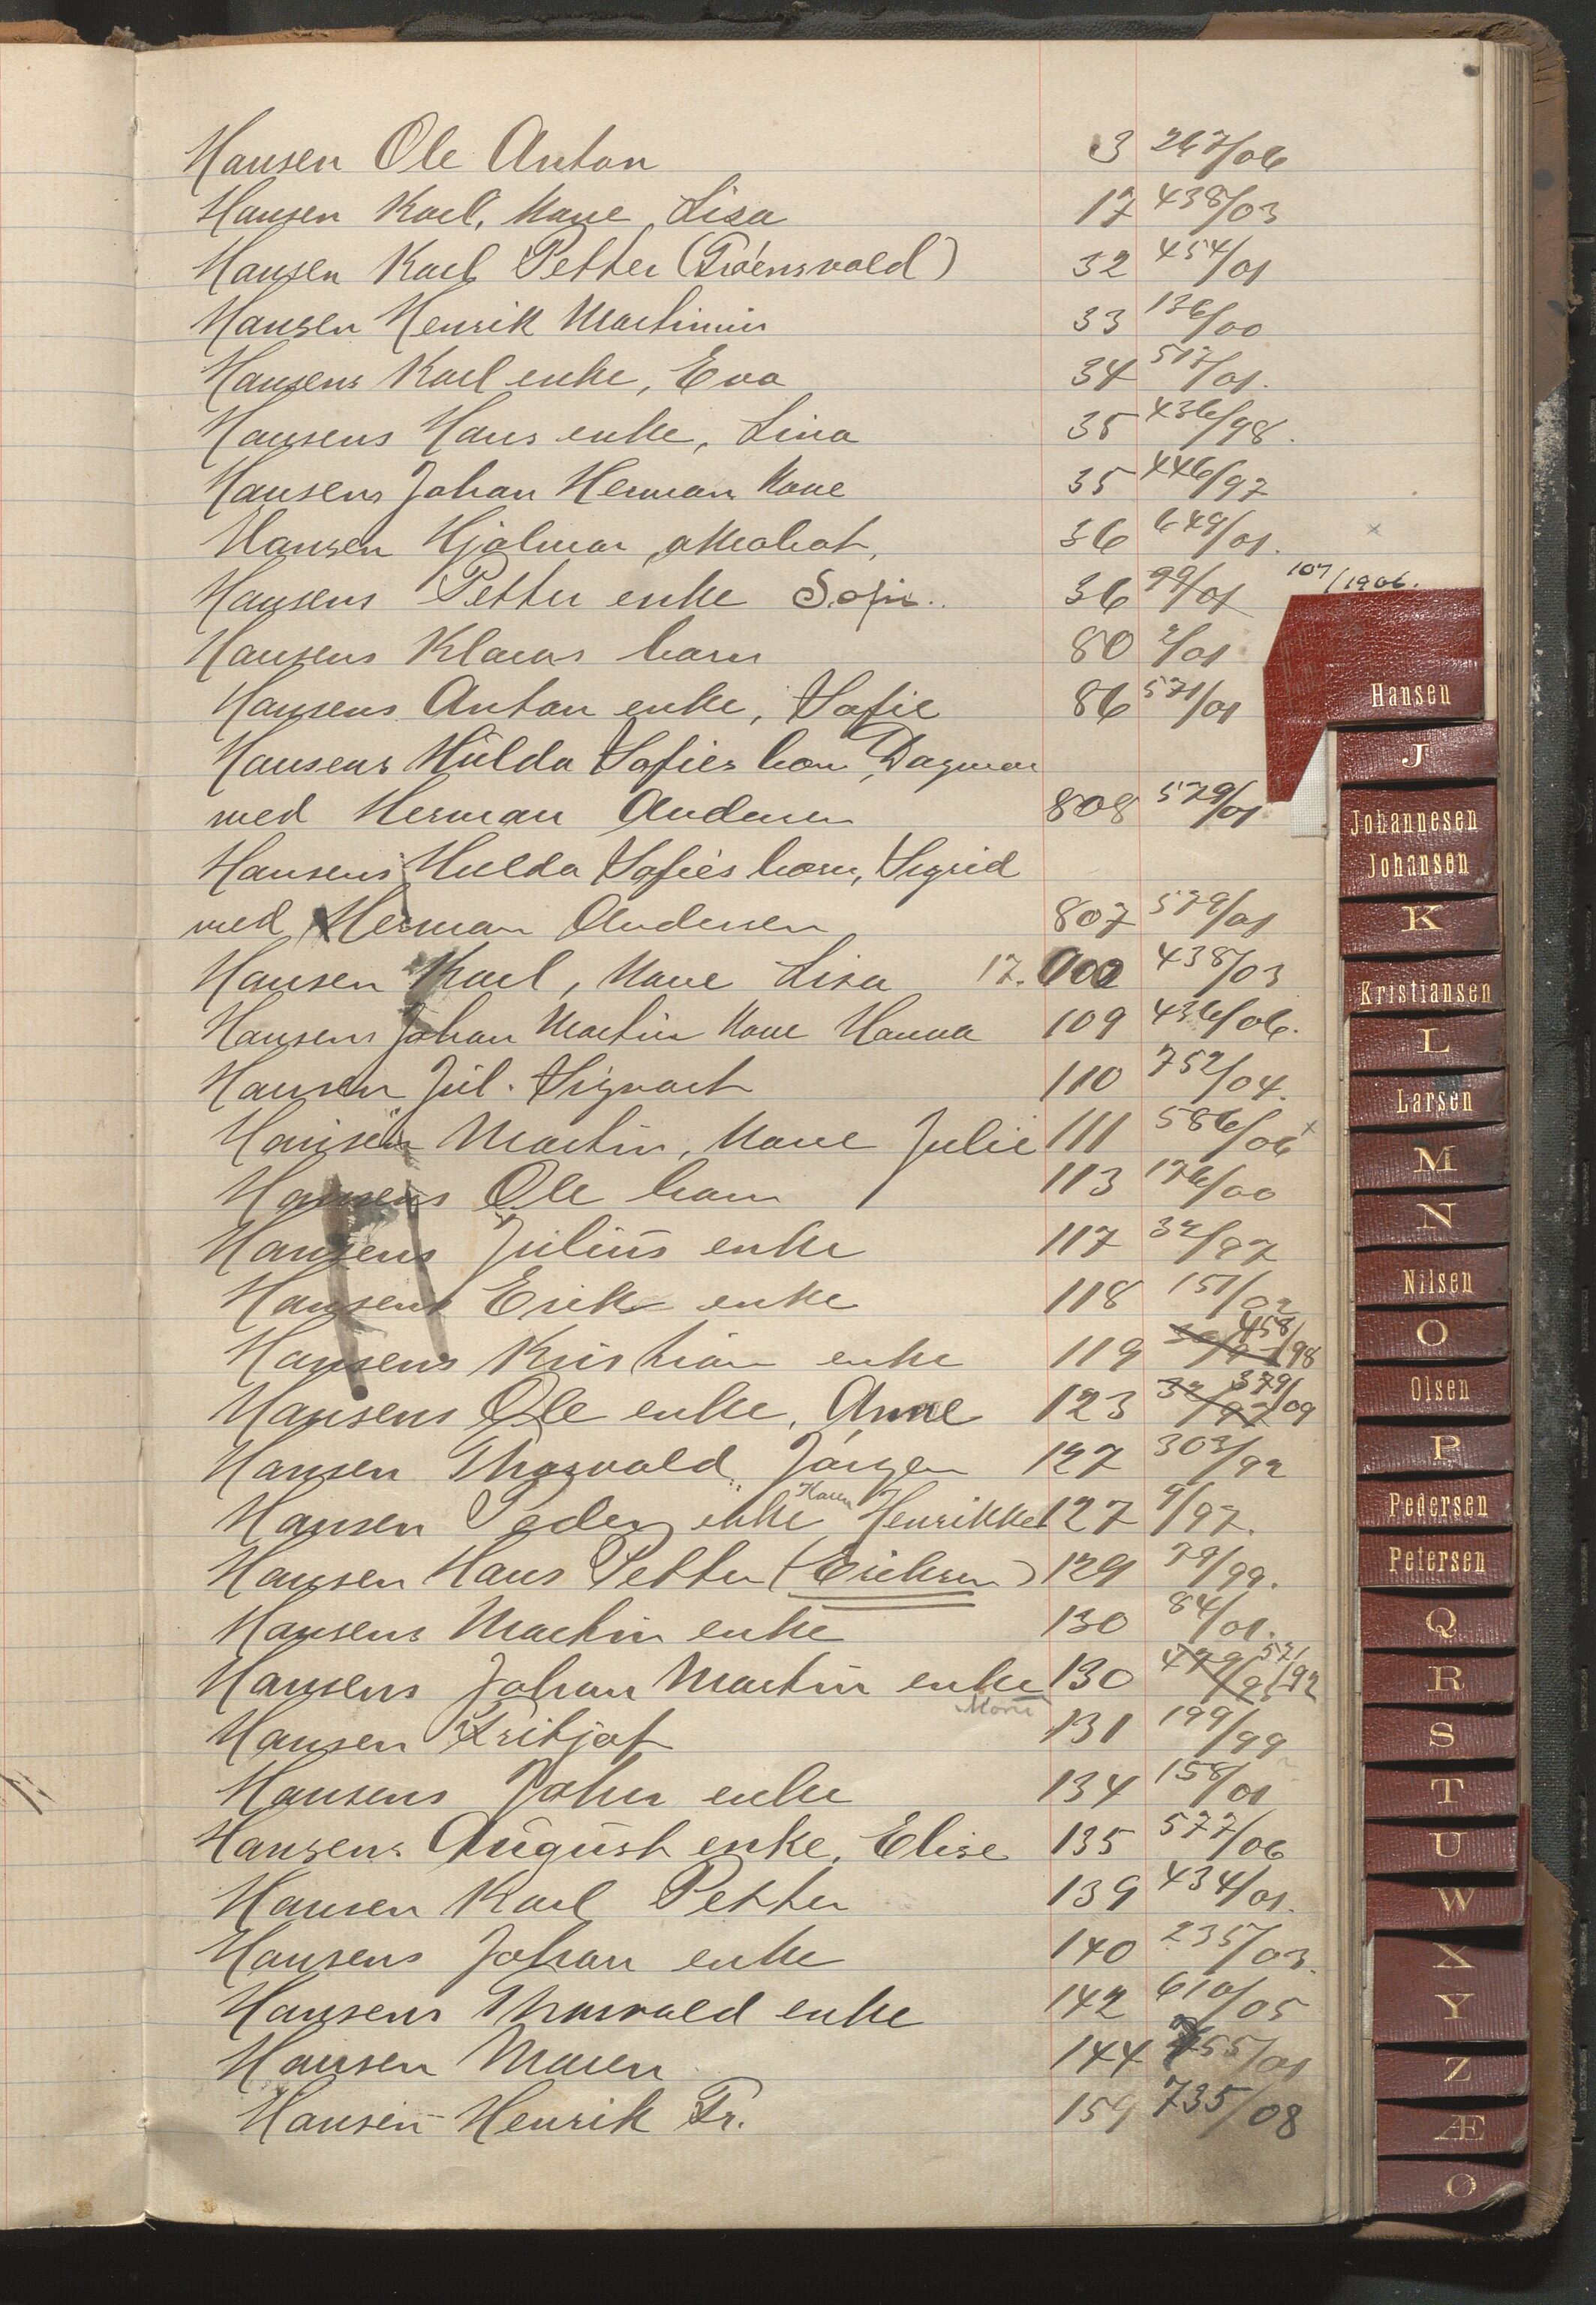 Hansen Ole Anton 3 267/06
Hansen Karl, Kone Lisa 17 438/03
Hansen Karl Petter (Trøensvold) 32 454/01
Hansen Henrik Martinius 33 136/00
Hansens Karl enke, Eva 34 517/01.
Hansens Hans enke, Lina 35 436/98.
Hansens Johan Herman Kone 35 446/97
Hansen Hjalmar, akrobat, 36 649/01.
Hansens Petter enke Sofie.. 36 99/01 107/1906.
Hansens Klaus barn 80 2/01
Hansens Anton enke, Sofie 86 571/01
Hansens Hulda Sofies barn, Dagmar
med Herman Andersen 808 579/01
Hansens Hulda Sofies barn, Sigrid
med Herman Andersen 807 579/01
Hansen Karl, Kone Lisa 17. 438/03
Hansens Johan Martin Kone Hanna 109 436/06.
Hansen Jul. Sigvart 110 752/04.
Hansen Martin, Kone Julie 111 586/06 x
Hansens Ole barn 113 176/00
Hansens Julius enke 117 32/97
Hansens Erik enke 118 151/02
Hansens Kristian enke 119 458/98
Hansens Ole enke, Anne 123 32/97 379/09
Hansen Thorvald Jørgen 127 303/92
Hansen Peder enke Karen Henrikke 127 9/97.
Hansen Hans Petter (Eriksen) 129 79/99.
Hansens Martin enke 130 84/01.
Hansens Johan Martin enke 130 479/95 521/92
Marie
Hansen Fritjof 131 199/99
Hansens John enke 134 158/01
Hansens August enke, Elise 135 577/06
Hansen Karl Petter 139 434/01.
Hansens Johan enke 140 235/03.
Hansens Thorvald enke 142 610/05
Hansen Maren 144 755/01
Hansen Henrik Fr. 159 735/08
Hansen
J
Johannesen
Johansen
K
Kristiansen
L
Larsen
M
N
Nilsen
O
Olsen
P
Pedersen
Petersen
Q
R
S
T
U
W
X
Y
Z
Æ
Ø